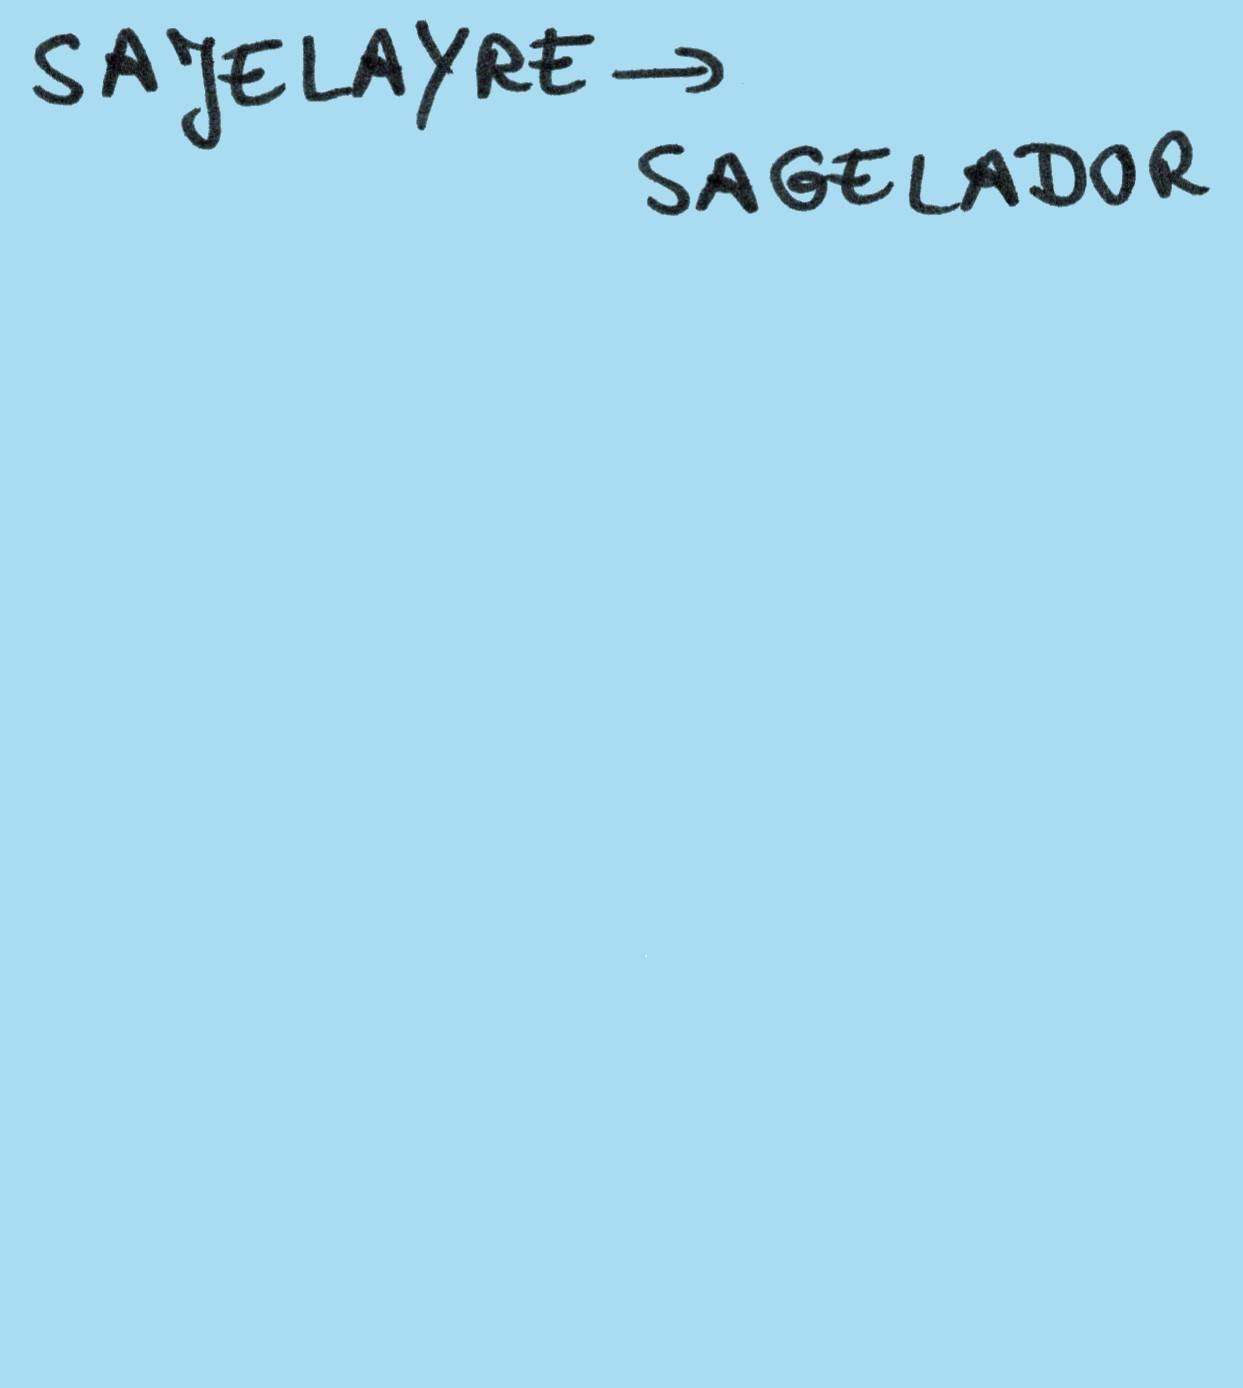 SAJELAYRE →
SAGELADOR